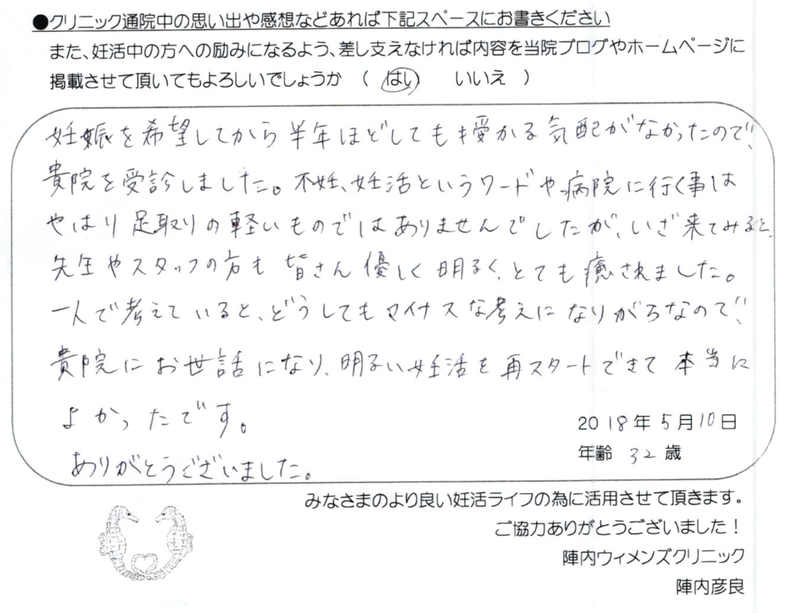 ●クリニック通院中の思い出や感想などあれば下記スペースにお書きください
また、妊活中の方への励みになるよう、差し支えなければ内容を当院ブログやホームページに
掲載させて頂いてもよろしいでしょうか （ はい いいえ ）
妊娠を希望してから半年ほどしても授かる気配がなかったので、
貴院を受診しました。不妊、妊活というワードや病院に行く事は
やはり足取りの軽いものではありませんでしたが、いざ来てみると、
先生やスタッフの方も皆さん優しく明るく、とても癒されました。
一人で考えていると、どうしてもマイナスな考えになりがちなので、
貴院にお世話になり、明るい妊活を再スタートできて本当に
よかったです。
ありがとうございました。
2018年5月10日
年齢 32 歳
みなさまのより良い妊活ライフの為に活用させて頂きます。
ご協力ありがとうございました！
陣内ウィメンズクリニック
陣内彦良